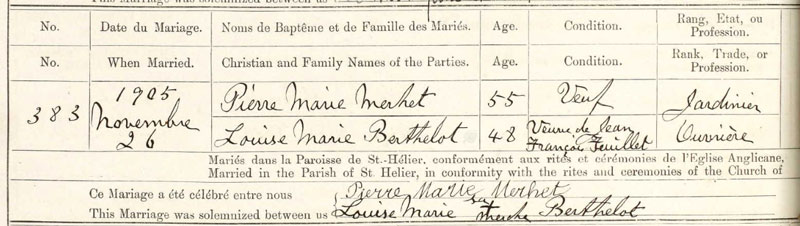 This Marriage was solemnized between us
No. Date du Mariage. Noms de Baptême et de Famille des Mariés. Age. Condition. Rang, Etat, ou Profession.
No. When Married. Christian and Family Names of the Parties. Age. Condition. Rank, Trade, or Profession.
383 1905 Novembre 26 Pierre Marie Merhet 55 Veuf Jardinier
Louise Marie Berthelot 48 Veuve de Jean François Feuillet Ouvrière
Mariés dans la Paroisse de St.-Hélier, conformément aux rites et cérémonies de l'Eglise Anglicane,
Married in the Parish of St. Helier, in conformity with the rites and ceremonies of the Church of
Ce Mariage a été célébré entre nous Pierre Marie Merhet
This Marriage was solemnized between us Louise Marie sa + merche Berthelot